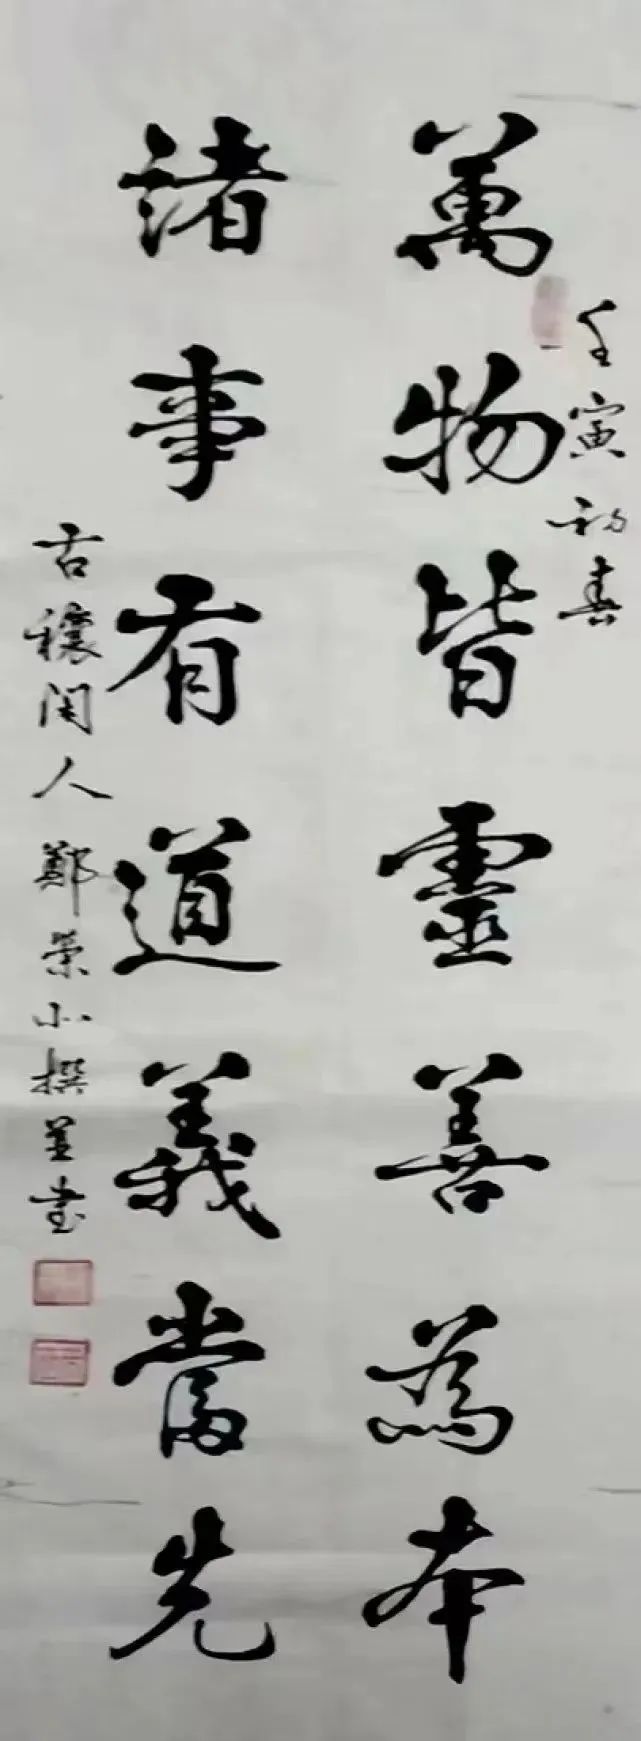 壬寅初春
萬物皆靈善為本
諸事有道義當先
古穰闲人鄭榮小撰並书